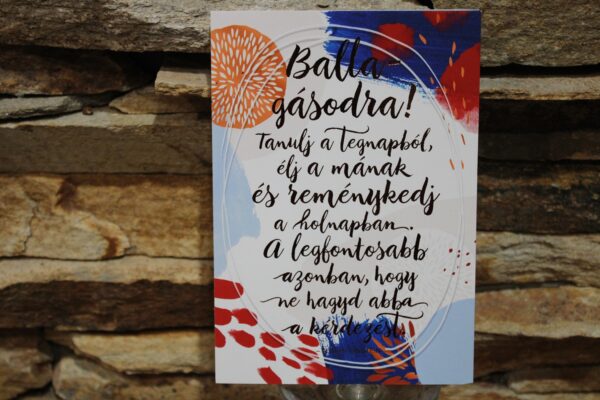 Balla-
gásodra!
Tanulj a tegnapból,
élj a mának
és reménykedj
a holnapban.
A legfontosabb
azonban, hogy
ne hagyd abba
a kérdezést.